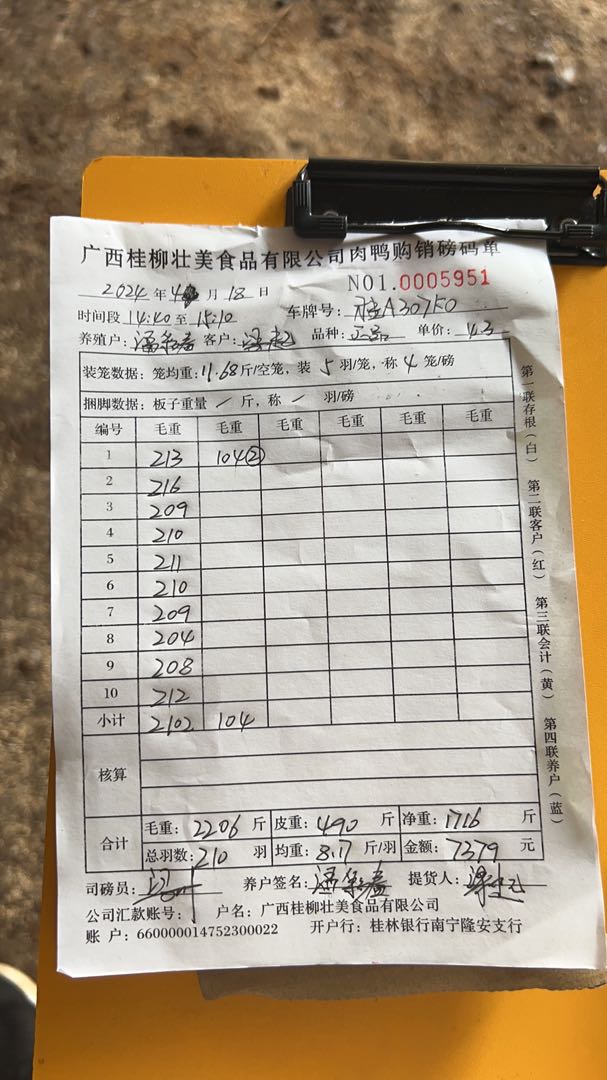 广西桂柳壮美食品有限公司肉鸭购销磅码单
NO1.0005951
2024 年 4 月 18 日
时间段 14:40 至 15:10 车牌号: 桂A307F0
养殖户: 客户: 品种: 正品 单价: 4.3
装笼数据: 笼均重: 11.68 斤/空笼, 装 5 羽/笼, 称 4 笼/磅
捆脚数据: 板子重量 / 斤, 称 / 羽/磅
编号 毛重 毛重 毛重 毛重 毛重 毛重
1 213 104②
2 216
3 209
4 210
5 211
6 210
7 209
8 204
9 208
10 212
小计 2102 104
核算
合计 毛重: 2206 斤 皮重: 490 斤 净重: 1716 斤
总羽数: 210 羽 均重: 8.17 斤/羽 金额: 7379 元
司磅员: 养户签名: 提货人:
公司汇款账号: 户名: 广西桂柳壮美食品有限公司
账 户: 660000014752300022 开户行: 桂林银行南宁隆安支行
第一联存根(白) 第二联客户(红) 第三联会计(黄) 第四联养户(蓝)